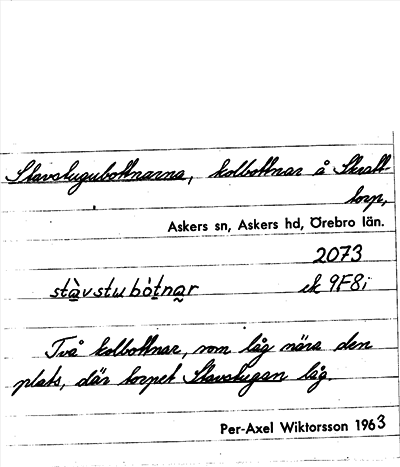 Stavstugubottnarna, kolbottnar å Skratt-
torp,
Askers sn, Askers hd, Örebro län.
2073
stàvstubòtnar ek 9F8i
Två kolbottnar, som låg nära den
plats, där torpet Stavstugan låg.
Per-Axel Wiktorsson 1963